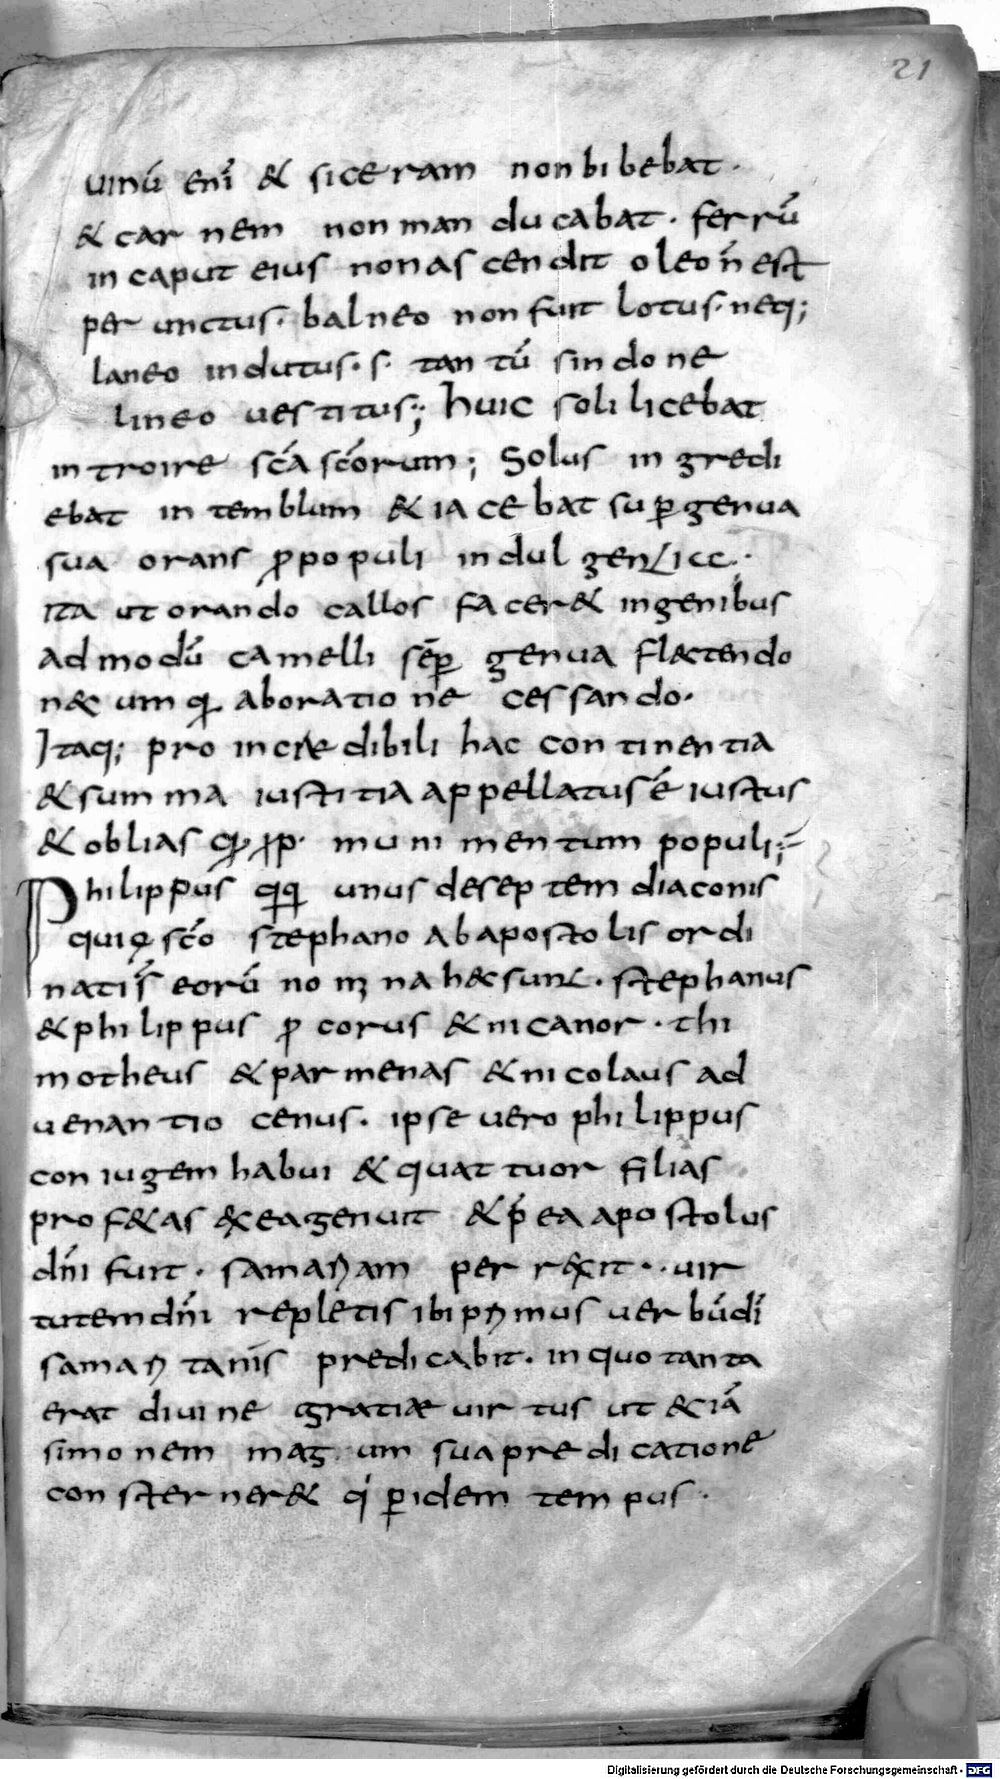 21
uinū enī & siceram non bibebat·
& carnem non manducabat· ferrū
in caput eius non ascendit oleo n̄ est
per unctus· balneo non fuit lotus· neq;
laneo indutus· s· tantū sindone
lineo uestitus; huic soli licebat
introire sc̄a sc̄orum; Solus ingredi
ebat in temblum & iacebat sup̱ genua
sua orans ꝓ populi indulgentiae·
ita ut orando callos facer& in genibus
ad modū camelli sēp̱ genua flectendo
nec umq̱ ab oratione cessando·
Itaq; pro incredibili hac continentia
& summa iustitia appellatus ē iustus
& oblias munimentum populi;
Philippus unus de septem diaconis
qui sc̄o stephano ab apostolis ordi
nati s̄ eorū nomina haec sunt· stephanus
& philippus ꝓcorus & nicanor· thi
motheus & parmenas & nicolaus ad
uenantiocenus· ipse uero philippus
coniugem habui & quattuor filias
prof&as ex ea genuit & p̄ ea apostolus
dn̄i fuit· samariam perrexit·· uir
tutem dn̄i repletis ibi primus uerbū dī
samaritanis predicabit· in quo tanta
erat diuine gratiae uirtus ut &iā
simonem magum sua predicatione
conster ner& q̇ p̱ idem tempus·
Digitalisierung gefördert durch die Deutsche Forschungsgemeinschaft - DFG